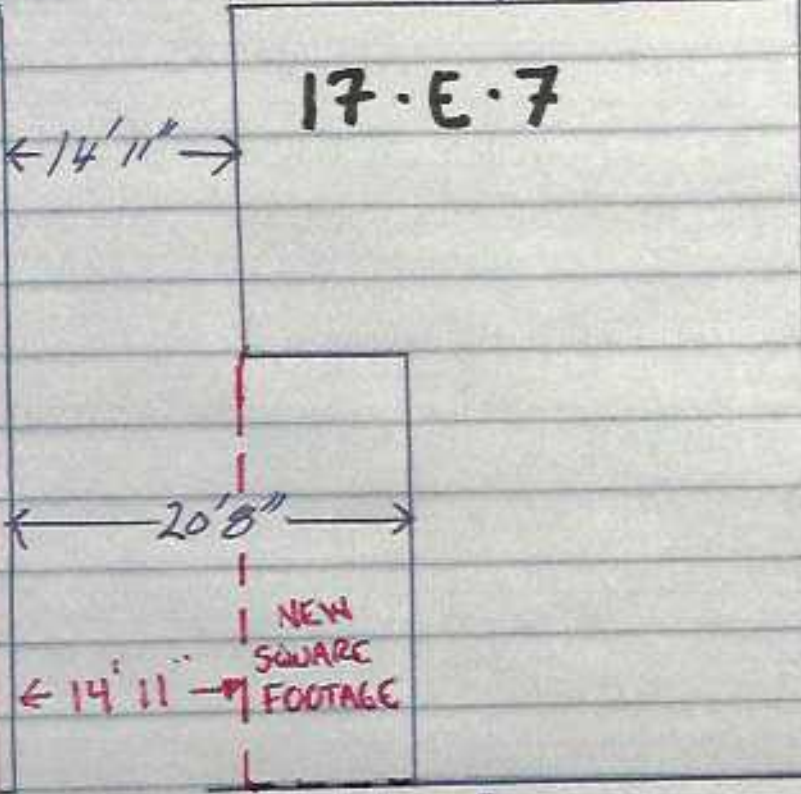 17·E·7
14'11"
20'8"
NEW
SQUARE
FOOTAGE
14'11"